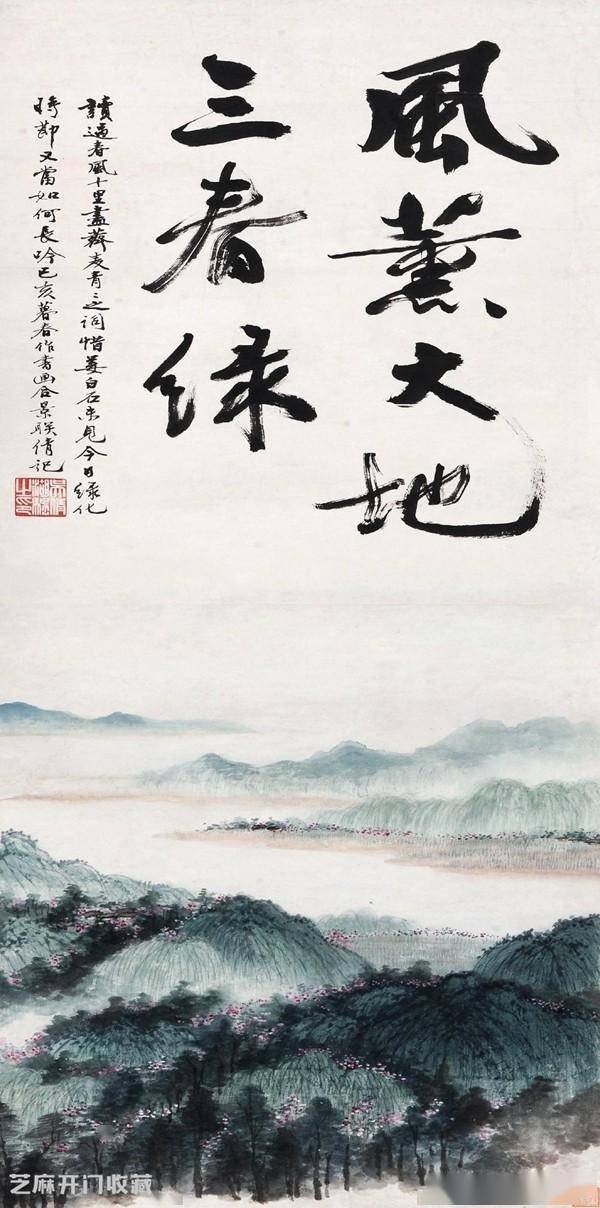 風薰大地
三春绿
讀過春風十里盡薺麦青之詞惜姜白石未見今日绿化
時節又當如何長吟己亥暮春作書画合景联倩記
芝麻开门收藏